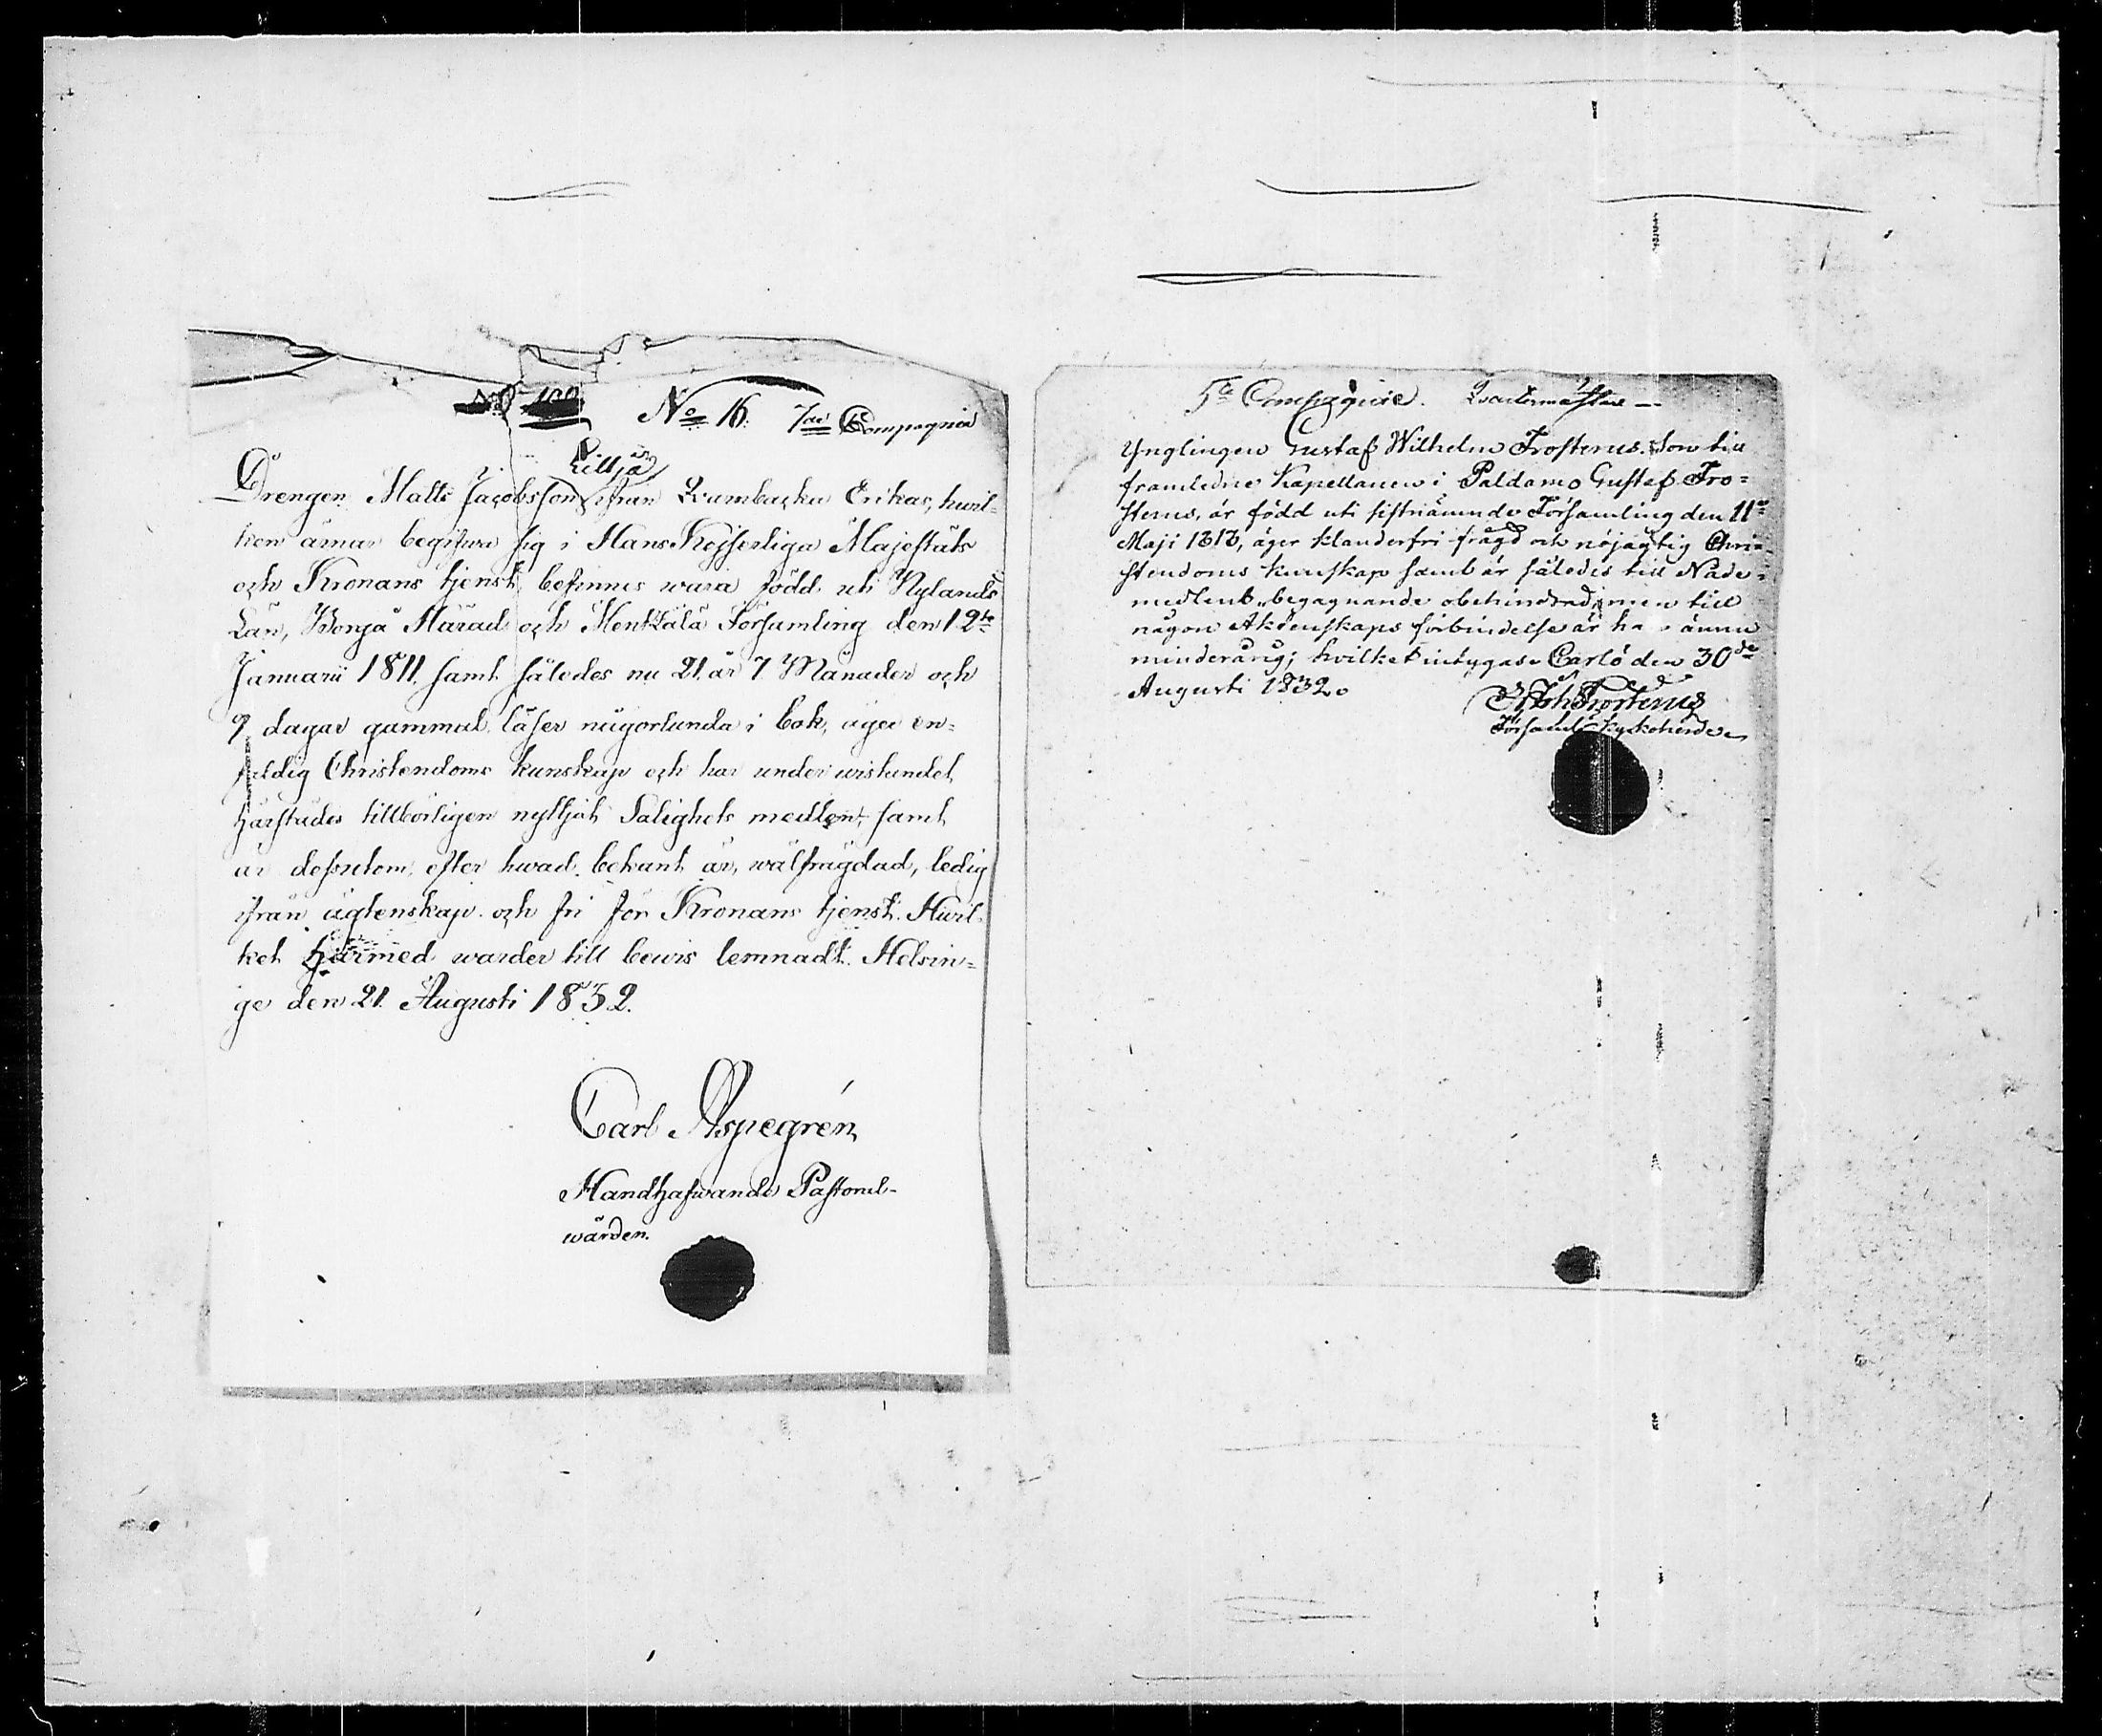 No 16. 7de Compagnia
Lillja
Drengen Matts Jacobsson ifrån Qvambacka Erikas, hwil-
ken ämar begifwa sig i Hans Kejserliga Majestäts
och Kronans tjenst, befinnes wara född uti Nylands
Län, Borgå Härad och Mentzälä Församling den 12te
Januarii 1811. samt således nu 21. år 7 Månader och
9 dagar gammal, läser någorlunda i bok, äger en-
faldig Christendoms kunskap och har under wistandet
härstädes tillbörligen nyttjat Salighets medlen, samt
är dessutom, efter hwad bekant är, wälfrägdad, ledig
ifrån ägtenskap och fri för Kronans tjenst. Hwil-
ket härmed warder till bewis lemnadt. Helsin=
ge den 21. Augusti 1832.
Carl Aspegrén,
Handhafwande Pastorals-
wården.
5te Compagnie. Qvartermästare —
Ynglingen Gustaf Wilhelm Frosterus. Son till
framledne Kapellanen i Paldamo Gustaf Fro=
sterus, är född uti sistnämnde Församling den 11te
Maji 1813, äger klanderfri frägd och nöjagtig Chri-
stendoms kunskap samt är således till Nåde=
medlens begagnande obehindrad, men till
någon Äktenskaps förbindelse är han ännu
minderårig; hvilket intygas. Carlö den 30de
Augusti 1832.
Joh Frosterus
Församl. Kyrkoherde